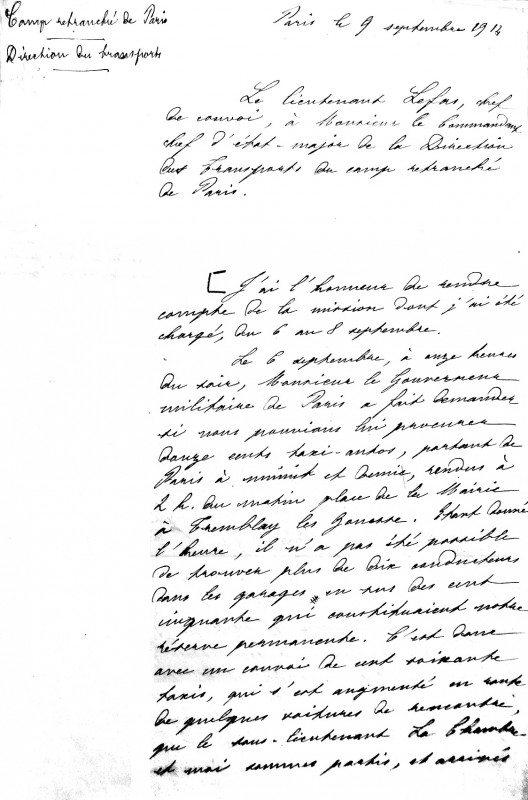 Camp retranché de Paris
Direction des transports
Paris le 9 septembre 1914
Le lieutenant Lefas, chef
de convoi, à Monsieur le Commandant
chef d'état-major de la Direction
des Transports du camp retranché
de Paris.
J'ai l'honneur de rendre
compte de la mission dont j'ai été
chargé, du 6 au 8 septembre.
Le 6 septembre, à onze heures
du soir, Monsieur le Gouverneur
militaire de Paris a fait demander
si nous pouvions lui procurer
douze cents taxi-autos, partant de
Paris à minuit et demie, rendus à
2 h. du matin place de la Mairie
à Tremblay les Gonesse. Etant donné
l'heure, il n'a pas été possible
de trouver plus de dix conducteurs
dans les garages en sus des cent
cinquante qui constituaient notre
réserve permanente. C'est donc
avec un convoi de cent soixante
taxis, qui s'est augmenté en route
de quelques voitures de rencontre,
que le sous-lieutenant La Chambre
et moi sommes partis, et arrivés